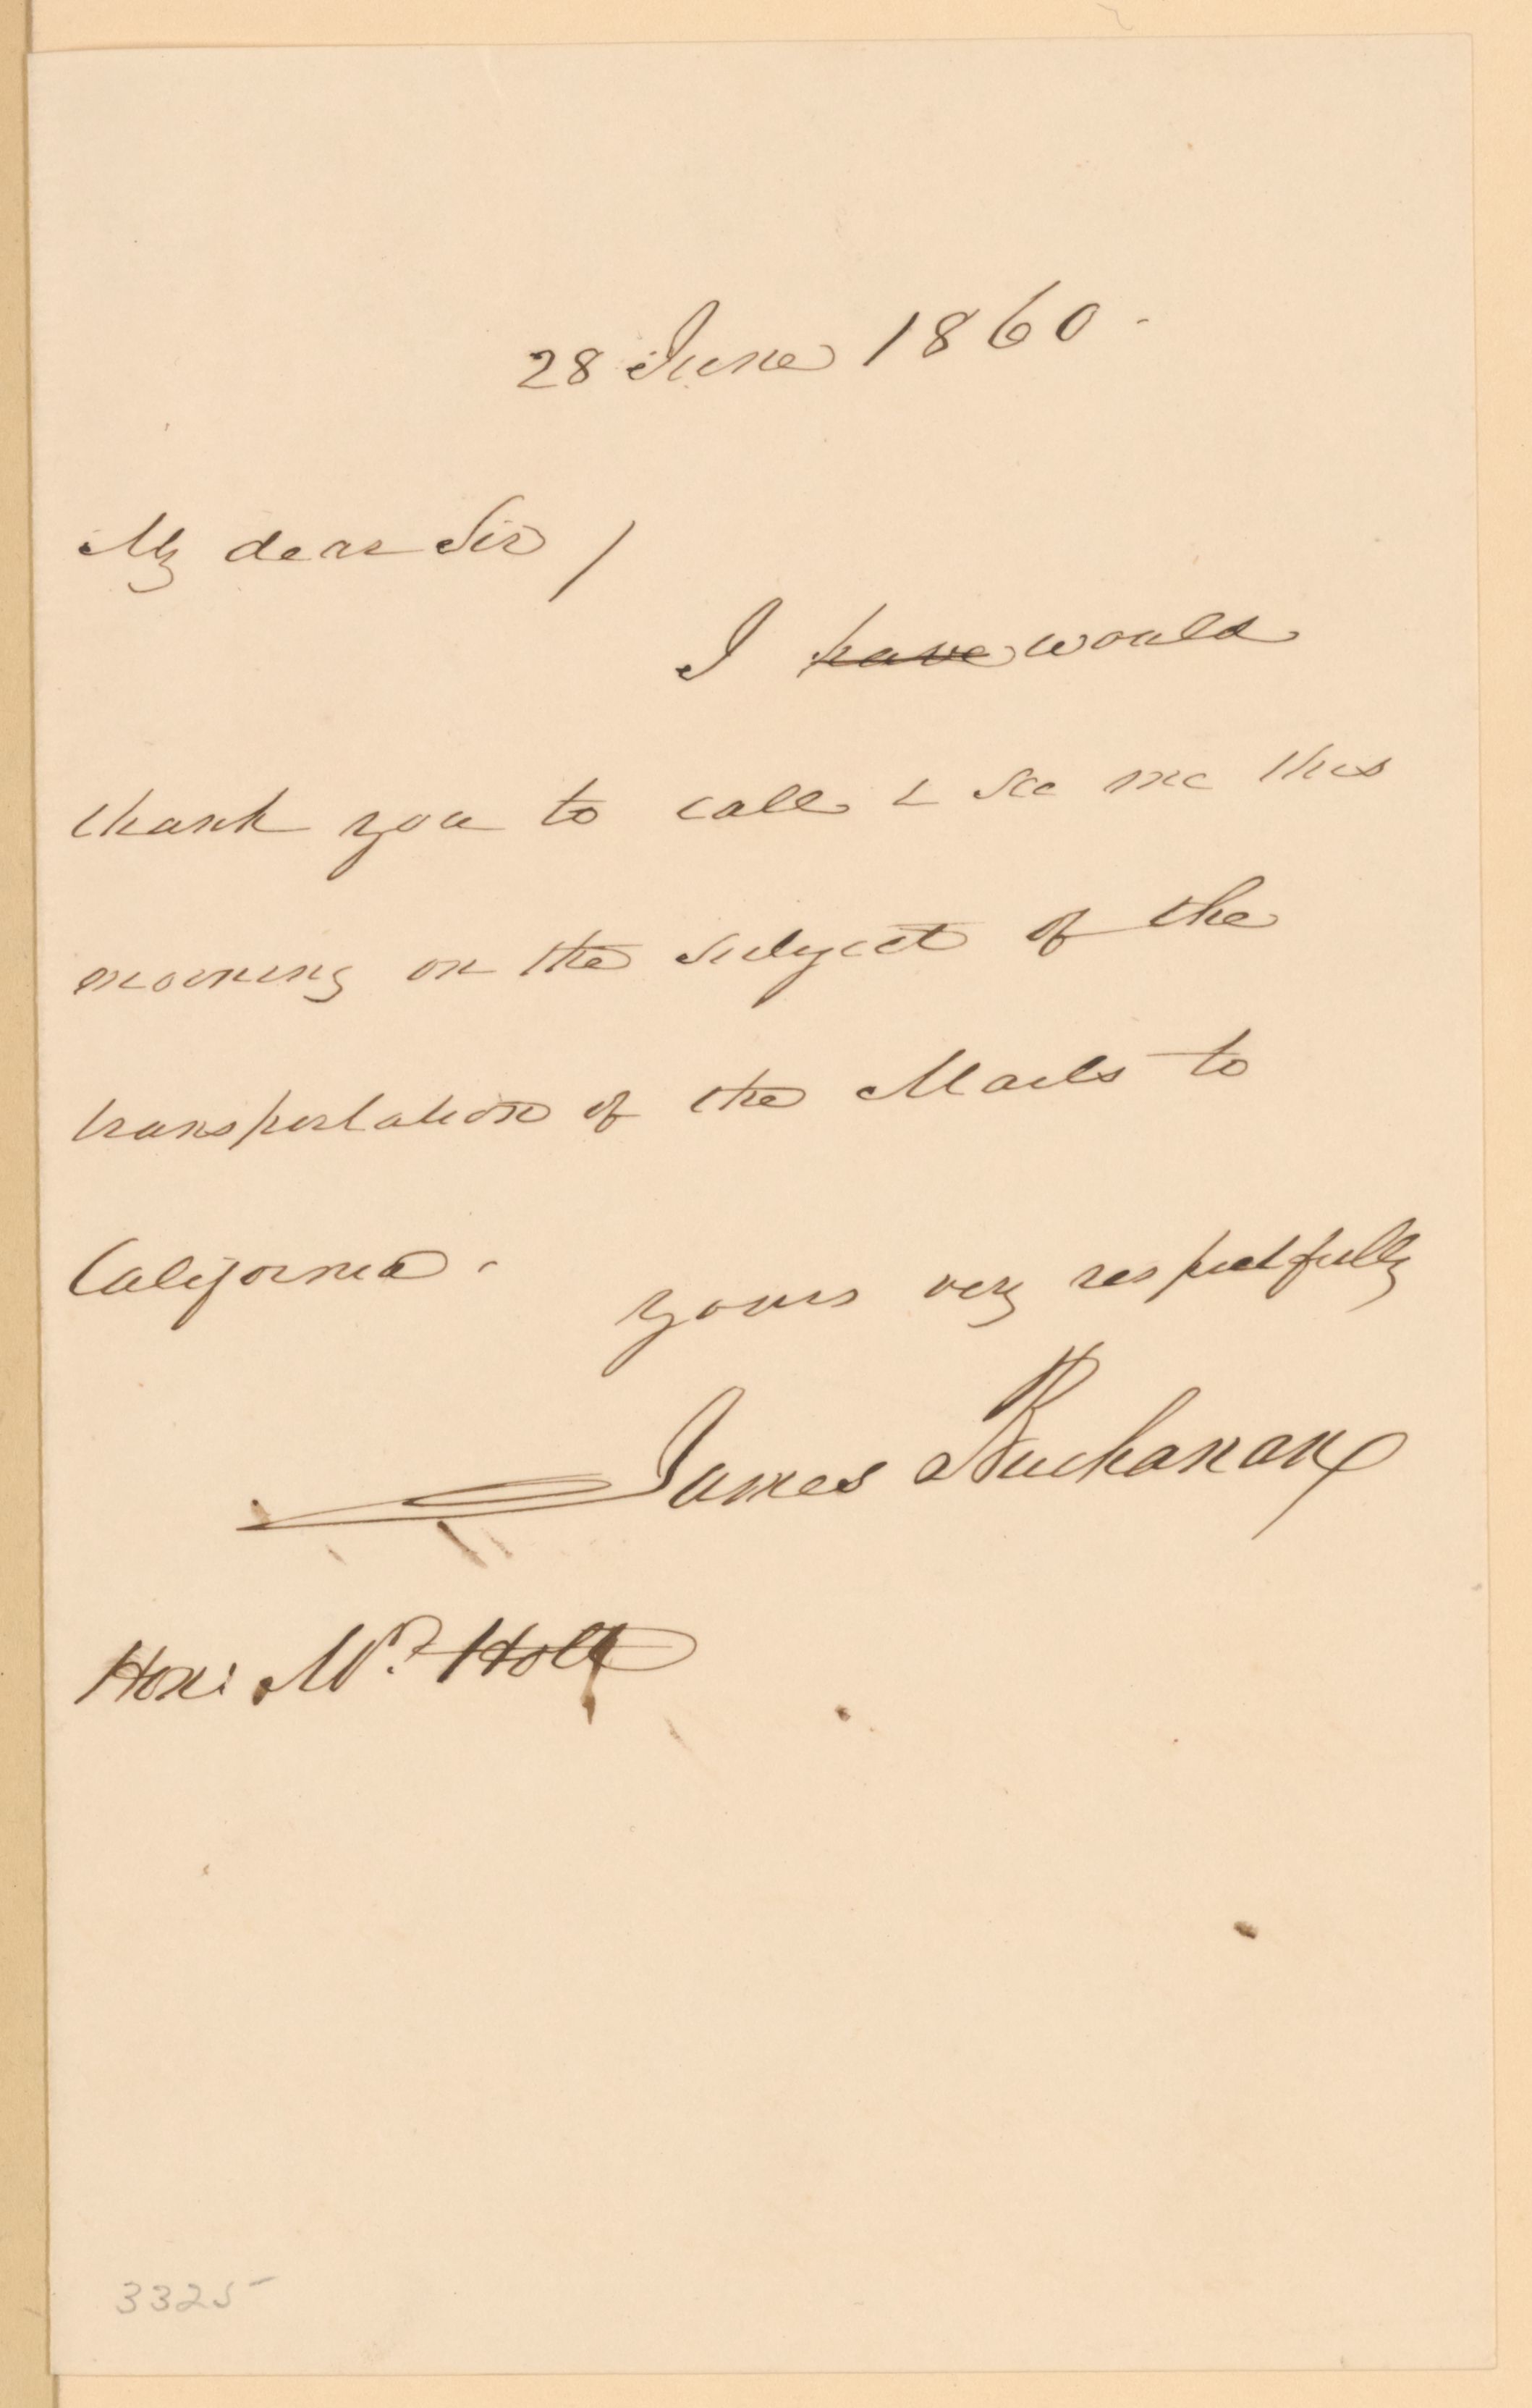 28 June 1860.
My dear Sir /
I have would
thank you to call & see me this
morning on the subject of the
transportation of the Mails to
California.
yours very respectfully
James Buchanan
Hon: Mr. Holt
3325